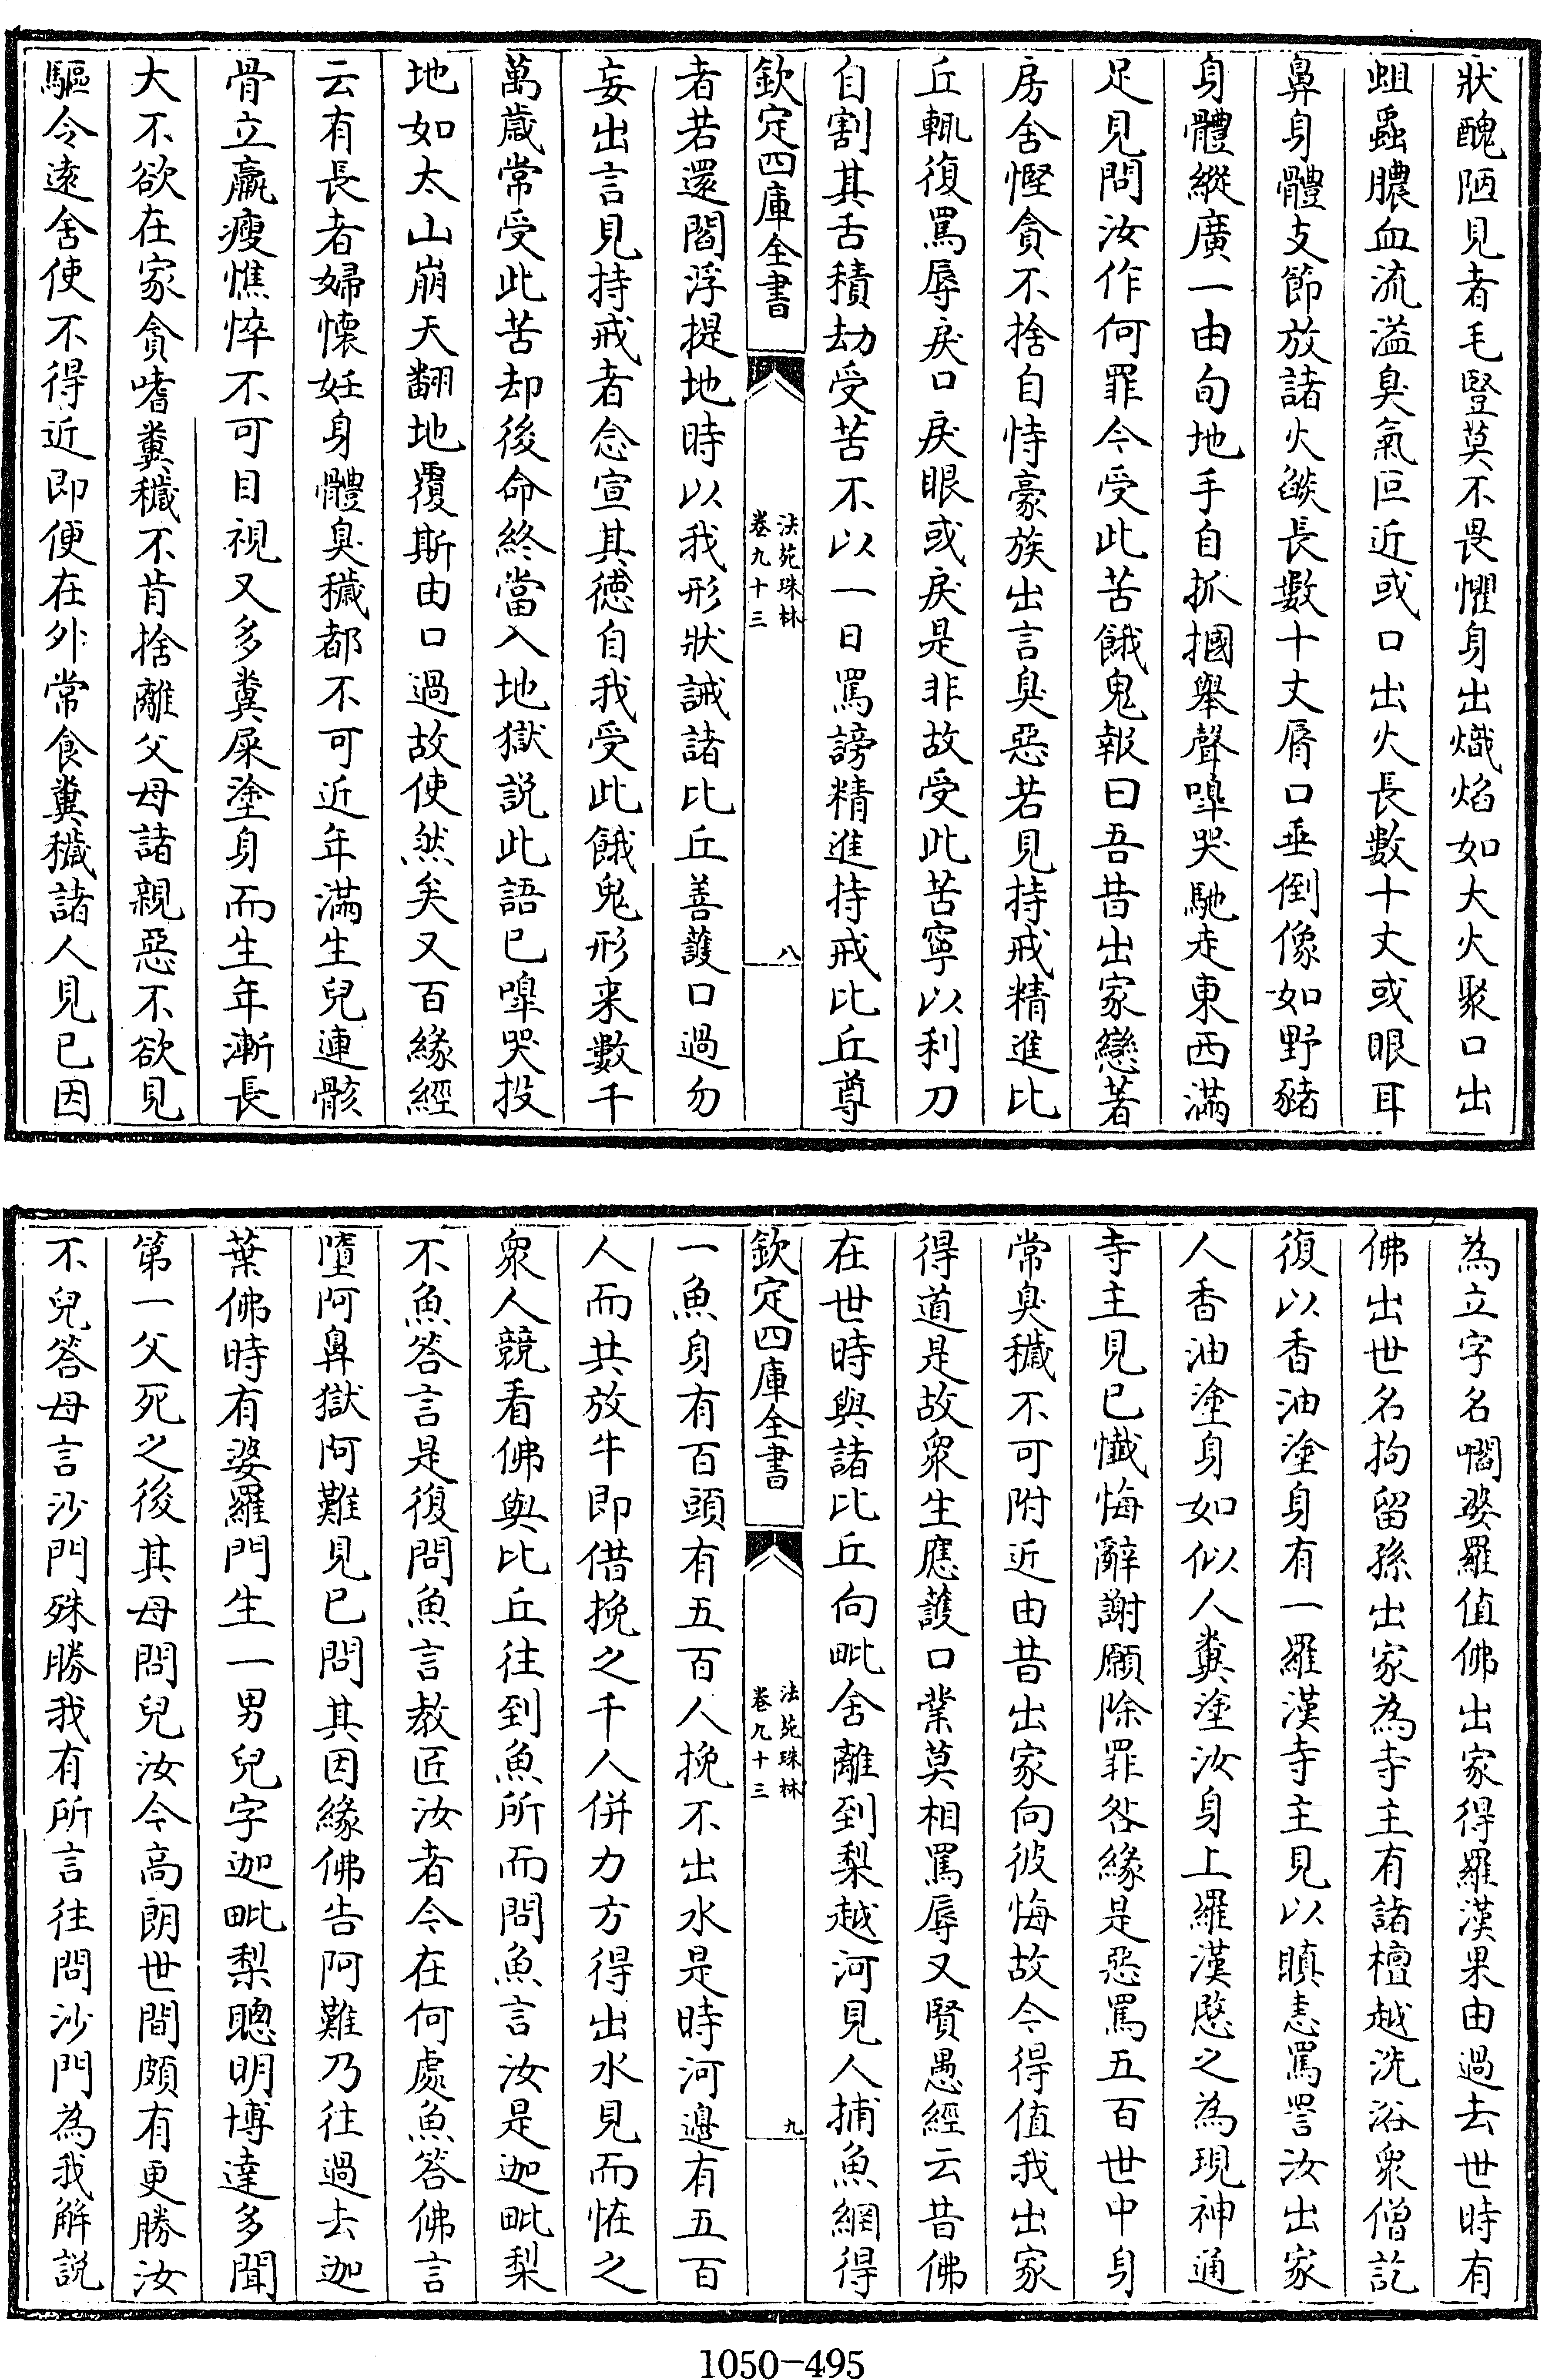 狀醜陋見者毛豎莫不畏懼身出熾焰如大火聚口出
蛆蟲膿血流溢臭氣叵近或口出火長數十丈或眼耳
鼻身體支節放諸火燄長數十丈脣口垂倒像如野豬
身體縱廣一由旬地手自抓摑舉聲嘷哭馳走東西滿
足見問汝作何罪今受此苦餓鬼報曰吾昔出家戀著
房舍慳貪不捨自恃豪族出言臭惡若見持戒精進比
丘輒復罵辱戾口戾眼或戾是非故受此苦寧以利刀
自割其舌積劫受苦不以一日罵謗精進持戒比丘尊
欽定四庫全書
法苑珠林
卷九十三
八
者若還閻浮提地時以我形狀誡諸比丘善護口過勿
妄出言見持戒者念宣其德自我受此餓鬼形来數千
萬歲常受此苦却後命終當入地獄説此語已嘷哭投
地如太山崩天翻地覆斯由口過故使然矣又百緣經
云有長者婦懐妊身體臭穢都不可近年滿生兒連骸
骨立羸瘦憔悴不可目視又多糞屎塗身而生年漸長
大不欲在家貪嗜糞穢不肯捨離父母諸親惡不欲見
驅令遠舍使不得近即便在外常食糞穢諸人見已因
為立字名嚪婆羅值佛出家得羅漢果由過去世時有
佛出世名拘留孫出家為寺主有諸檀越洗浴衆僧訖
復以香油塗身有一羅漢寺主見以瞋恚罵詈汝出家
人香油塗身如似人糞塗汝身上羅漢愍之為現神通
寺主見已懺悔辭謝願除罪咎緣是惡罵五百世中身
常臭穢不可附近由昔出家向彼悔故今得值我出家
得道是故衆生應護口業莫相罵辱又賢愚經云昔佛
在世時與諸比丘向毗舍離到梨越河見人捕魚網得
欽定四庫全書
法苑珠林
卷九十三
九
一魚身有百頭有五百人挽不出水是時河邊有五百
人而共放牛即借挽之千人併力方得出水見而恠之
衆人競看佛與比丘往到魚所而問魚言汝是迦毗梨
不魚答言是復問魚言教匠汝者今在何處魚答佛言
墮阿鼻獄阿難見已問其因緣佛告阿難乃往過去迦
葉佛時有婆羅門生一男兒字迦毗梨聰明博達多聞
第一父死之後其母問兒汝今高朗世間頗有更勝汝
不兒答母言沙門殊勝我有所言往問沙門為我解説
1050-495